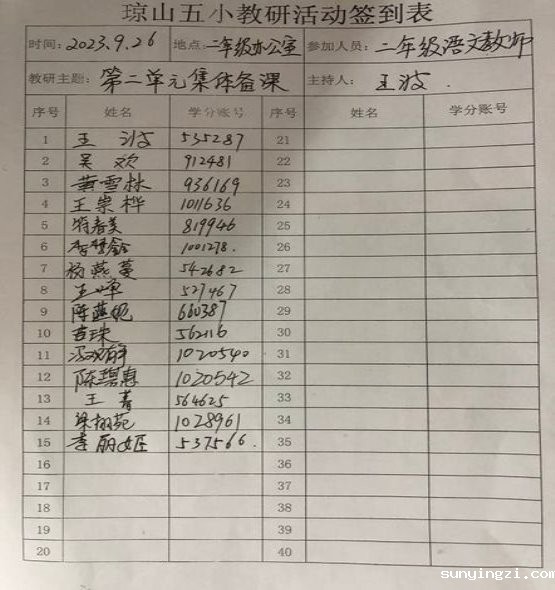 琼山五小教研活动签到表
时间：2023.9.26 地点：二年级办公室 参加人员：二年级语文教师
教研主题：第二单元集体备课 主持人：王波.
序号 姓名 学分账号 序号 姓名 学分账号
1 王波 535287 21
2 吴欢 912481 22
3 黄雪林 936169 23
4 王崇桦 1011636 24
5 符春美 819946 25
6 1001278. 26
7 杨燕蔓 542682 27
8 王婵 527467 28
9 陈燕妮 660387 29
10 吉珠 562116 30
11 1020540 31
12 陈碧惠 1020542 32
13 王菁 564625 33
14 梁栩苑 1028961 34
15 李丽姬 537566. 35
16 36
17 37
18 38
19 39
20 40
sunyingzi.com